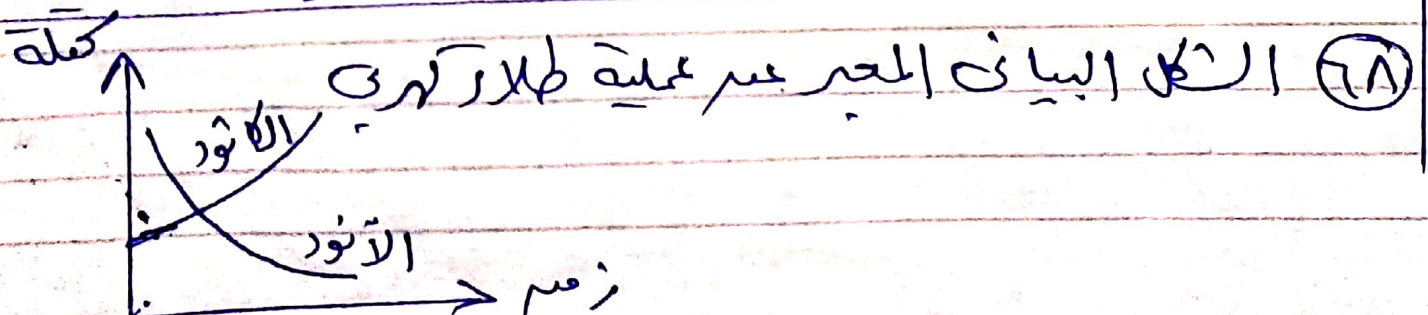 ٦٨ الشكل البياني المعبر عن عملية طلاء كهربي
كتلة
الكاثود
الآنود
زمن